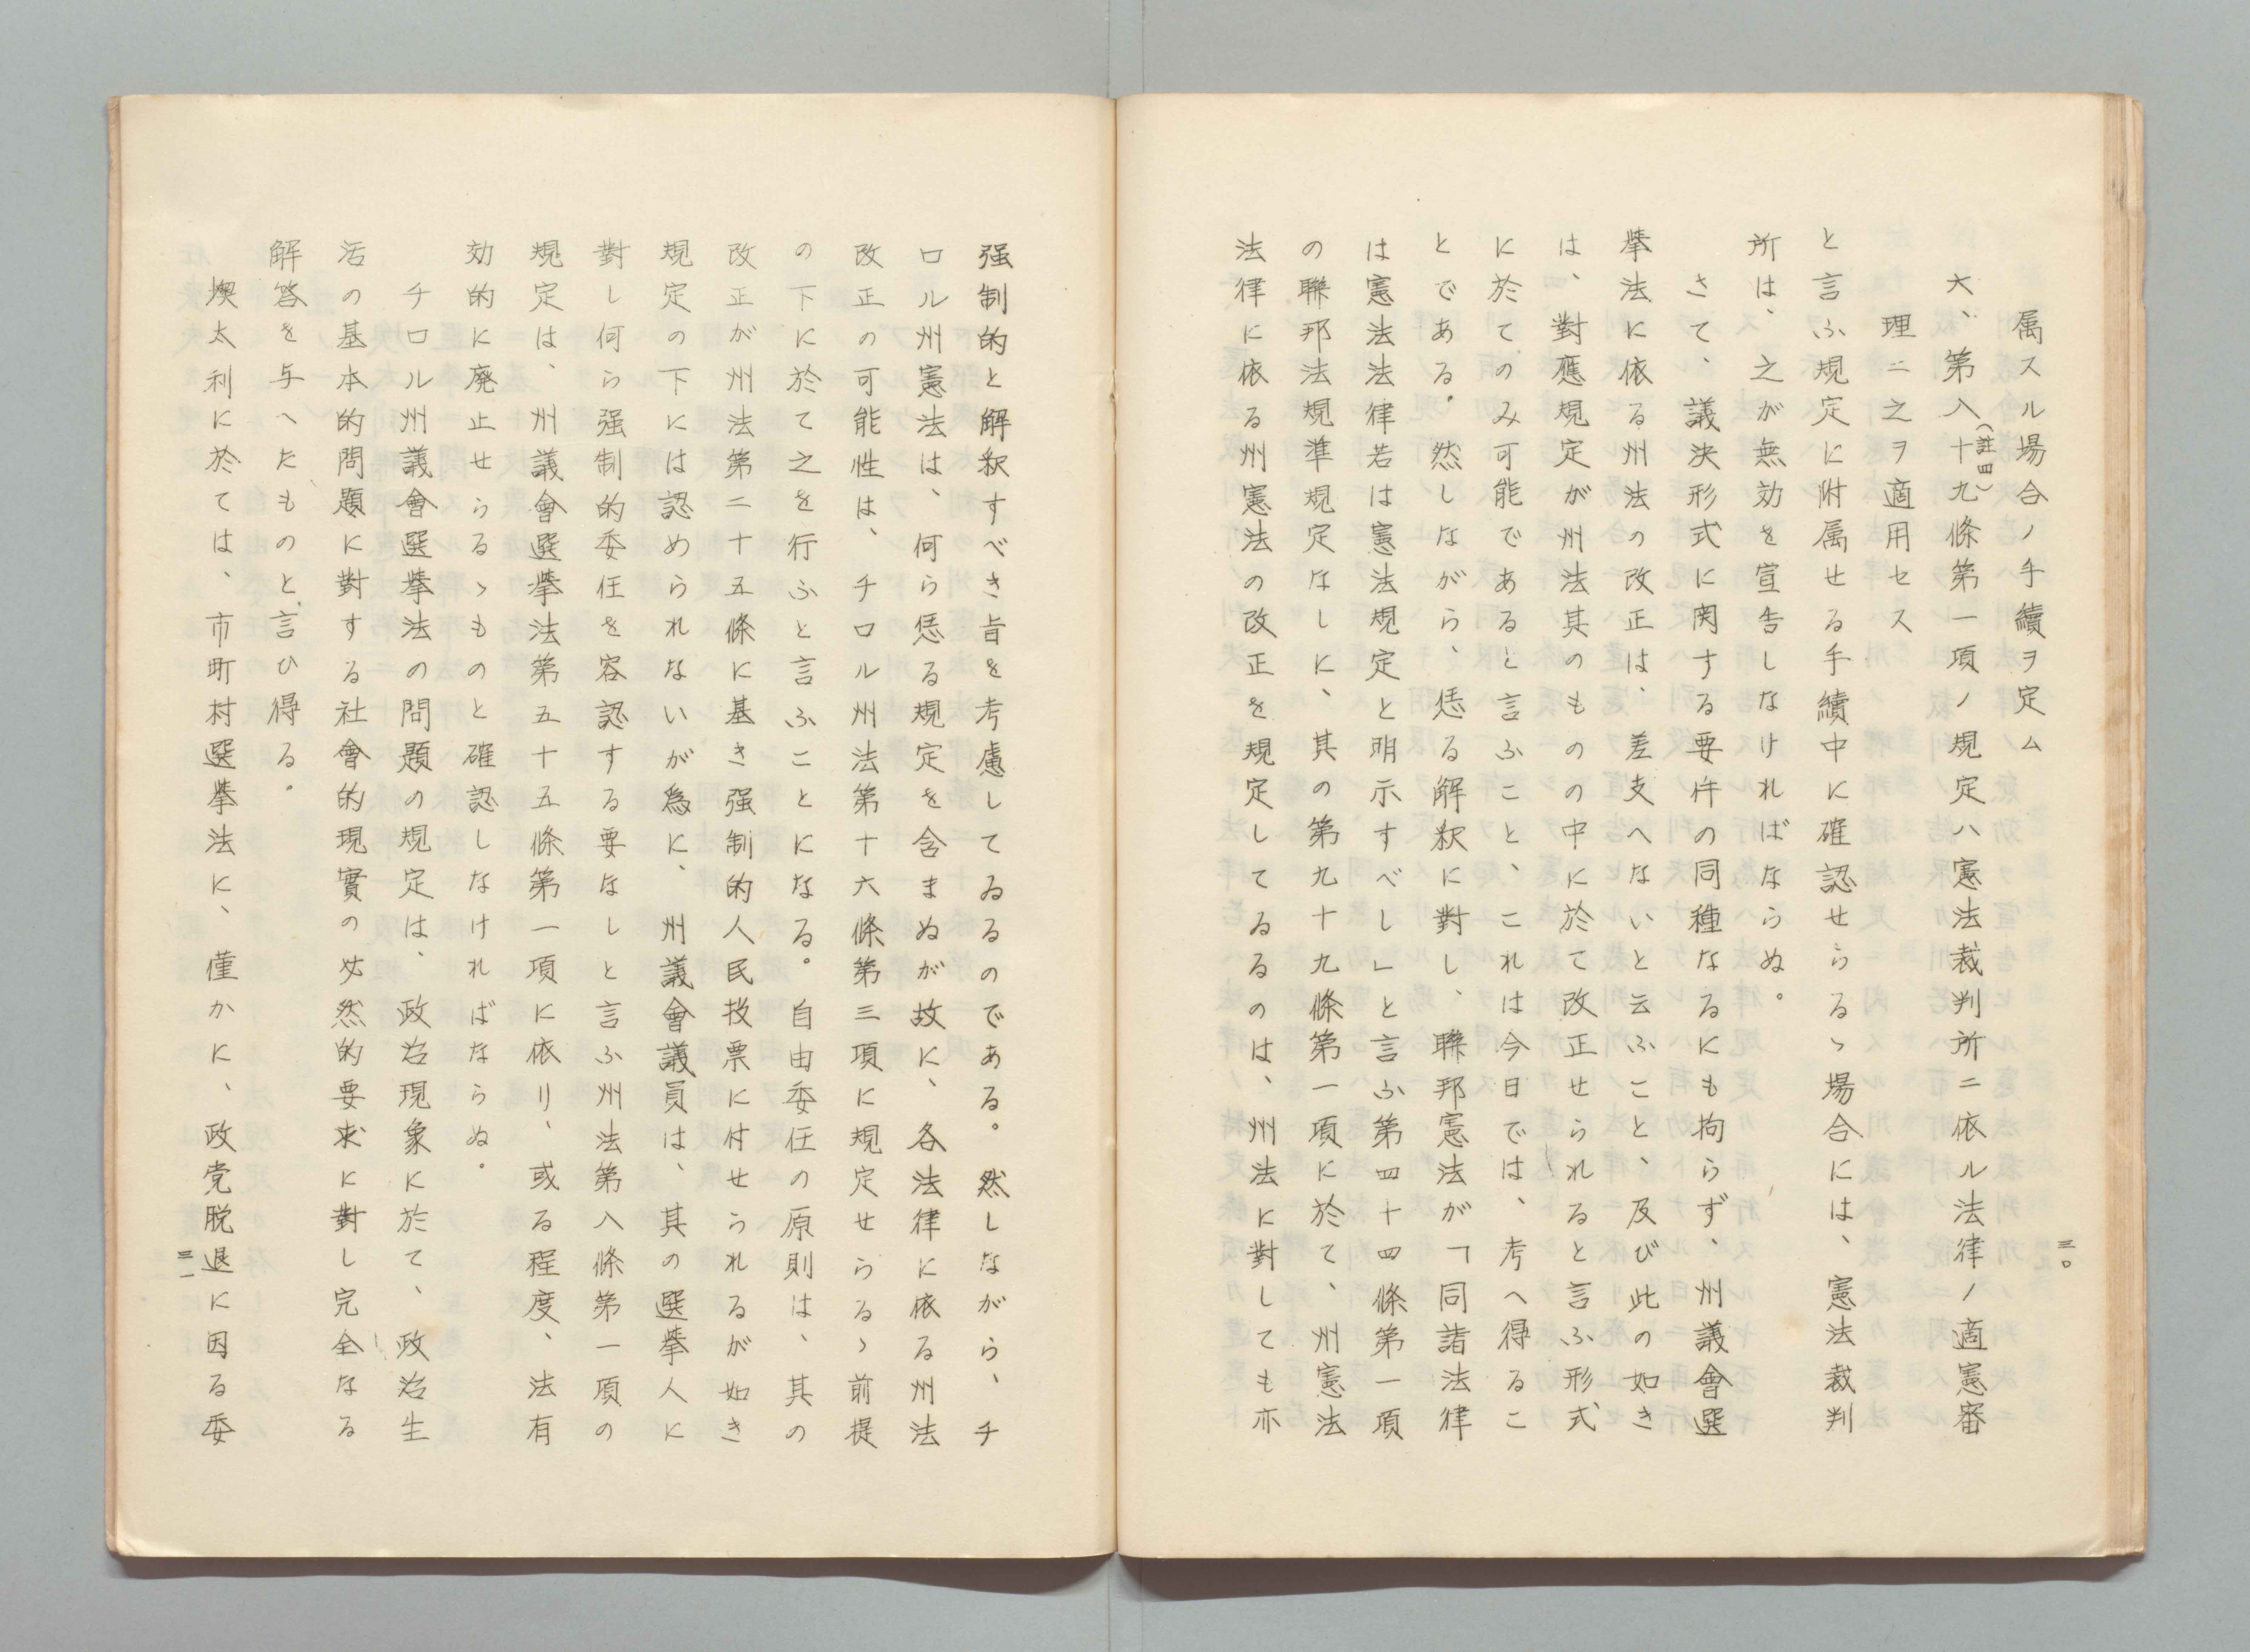 三〇
属スル場合ノ手續ヲ定ム
六、第八十九條第一項ノ規定ハ憲法裁判所ニ依ル法律ノ適憲審
(註四)
理ニ之ヲ適用セス
と言ふ規定に附属せる手續中に確認せらるゝ場合には、憲法裁判
所は、之が無効を宣告しなければならぬ。
さて、議決形式に関する要件の同種なるにも拘らず、州議會選
挙法に依る州法の改正は、差支へないと云ふこと、及び此の如き
は、對應規定が州法其のものの中に於て改正せられると言ふ形式
に於てのみ可能であると言ふこと、これは今日では、考へ得るこ
とである。然しながら、恁る解釈に對し、聯邦憲法が「同諸法律
は憲法法律若は憲法規定と明示すべし」と言ふ第四十四條第一項
の聯邦法規準規定なしに、其の第九十九條第一項に於て、州憲法
法律に依る州憲法の改正を規定してゐるのは、州法に對しても亦
强制的と解釈すべき旨を考慮してゐるのである。然しながら、チ
ロル州憲法は、何ら恁る規定を含まぬが故に、各法律に依る州法
改正の可能性は、チロル州法第十六條第三項に規定せらるゝ前提
の下に於て之を行ふと言ふことになる。自由委任の原則は、其の
改正が州法第二十五條に基き强制的人民投票に付せられるが如き
規定の下には認められないが為に、州議會議員は、其の選挙人に
對し何ら强制的委任を容認する要なしと言ふ州法第八條第一項の
規定は、州議會選挙法第五十五條第一項に依り、或る程度、法有
効的に廃止せらるゝものと確認しなければならぬ。
チロル州議會選挙法の問題の規定は、政治現象に於て、政治生
活の基本的問題に對する社會的現實の必然的要求に對し完全なる
解答を与へたものと言ひ得る。
墺太利に於ては、市町村選挙法に、僅かに、政党脱退に因る委
三一